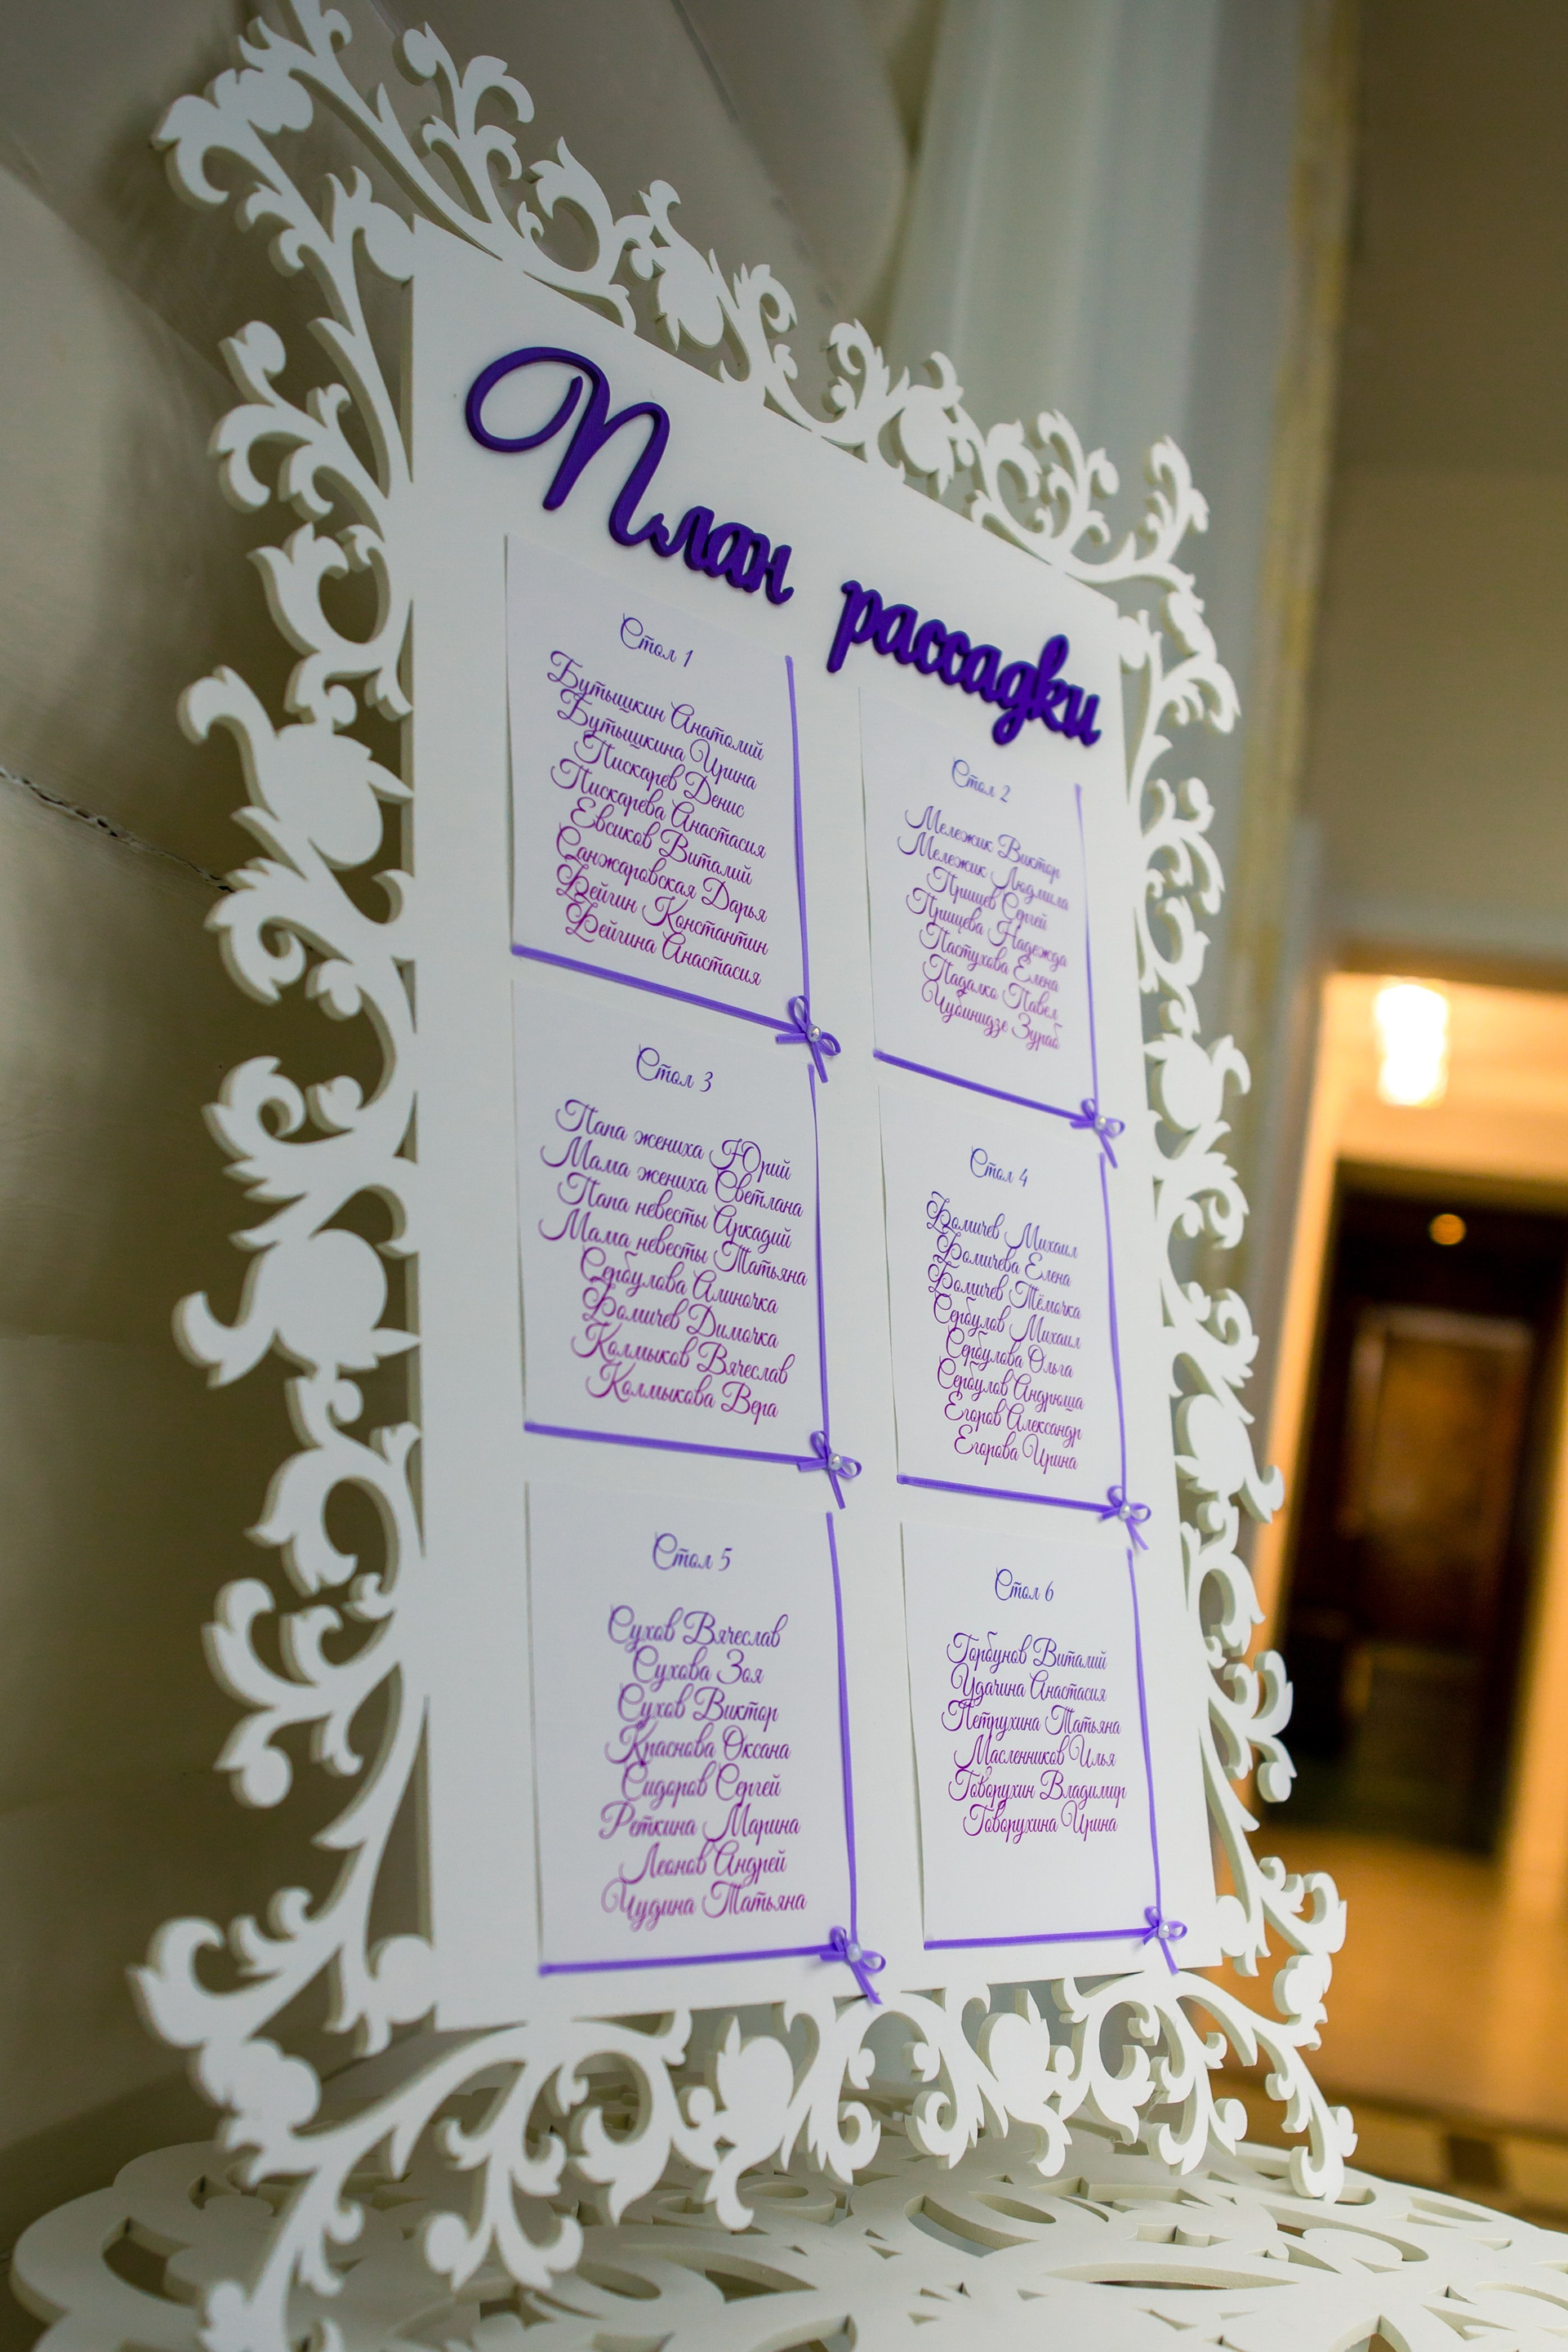 План рассадки
Стол 1
Бутышкин Анатолий
Бутышкина Ирина
Пискарев Денис
Пискарева Анастасия
Евсиков Виталий
Санжаровская Дарья
Фейгин Константин
Фейгина Анастасия
Стол 2
Мележик Виктор
Мележик Людмила
Прищев Сергей
Прищева Надежда
Пастухова Елена
Падалко Павел
Чубинидзе Зураб
Стол 3
Папа жениха Юрий
Мама жениха Светлана
Папа невесты Аркадий
Мама невесты Татьяна
Сербулова Алиночка
Фомичев Димочка
Колмыков Вячеслав
Колмыкова Вера
Стол 4
Фомичев Михаил
Фомичева Елена
Фомичев Тёмочка
Сербулов Михаил
Сербулова Ольга
Сербулов Андрюша
Егоров Александр
Егорова Ирина
Стол 5
Сухов Вячеслав
Сухова Зоя
Сухов Виктор
Краснова Оксана
Сидоров Сергей
Реткина Марина
Леонов Андрей
Чудина Татьяна
Стол 6
Горбунов Виталий
Удачина Анастасия
Петрухина Татьяна
Масленников Илья
Говорухин Владимир
Говорухина Ирина